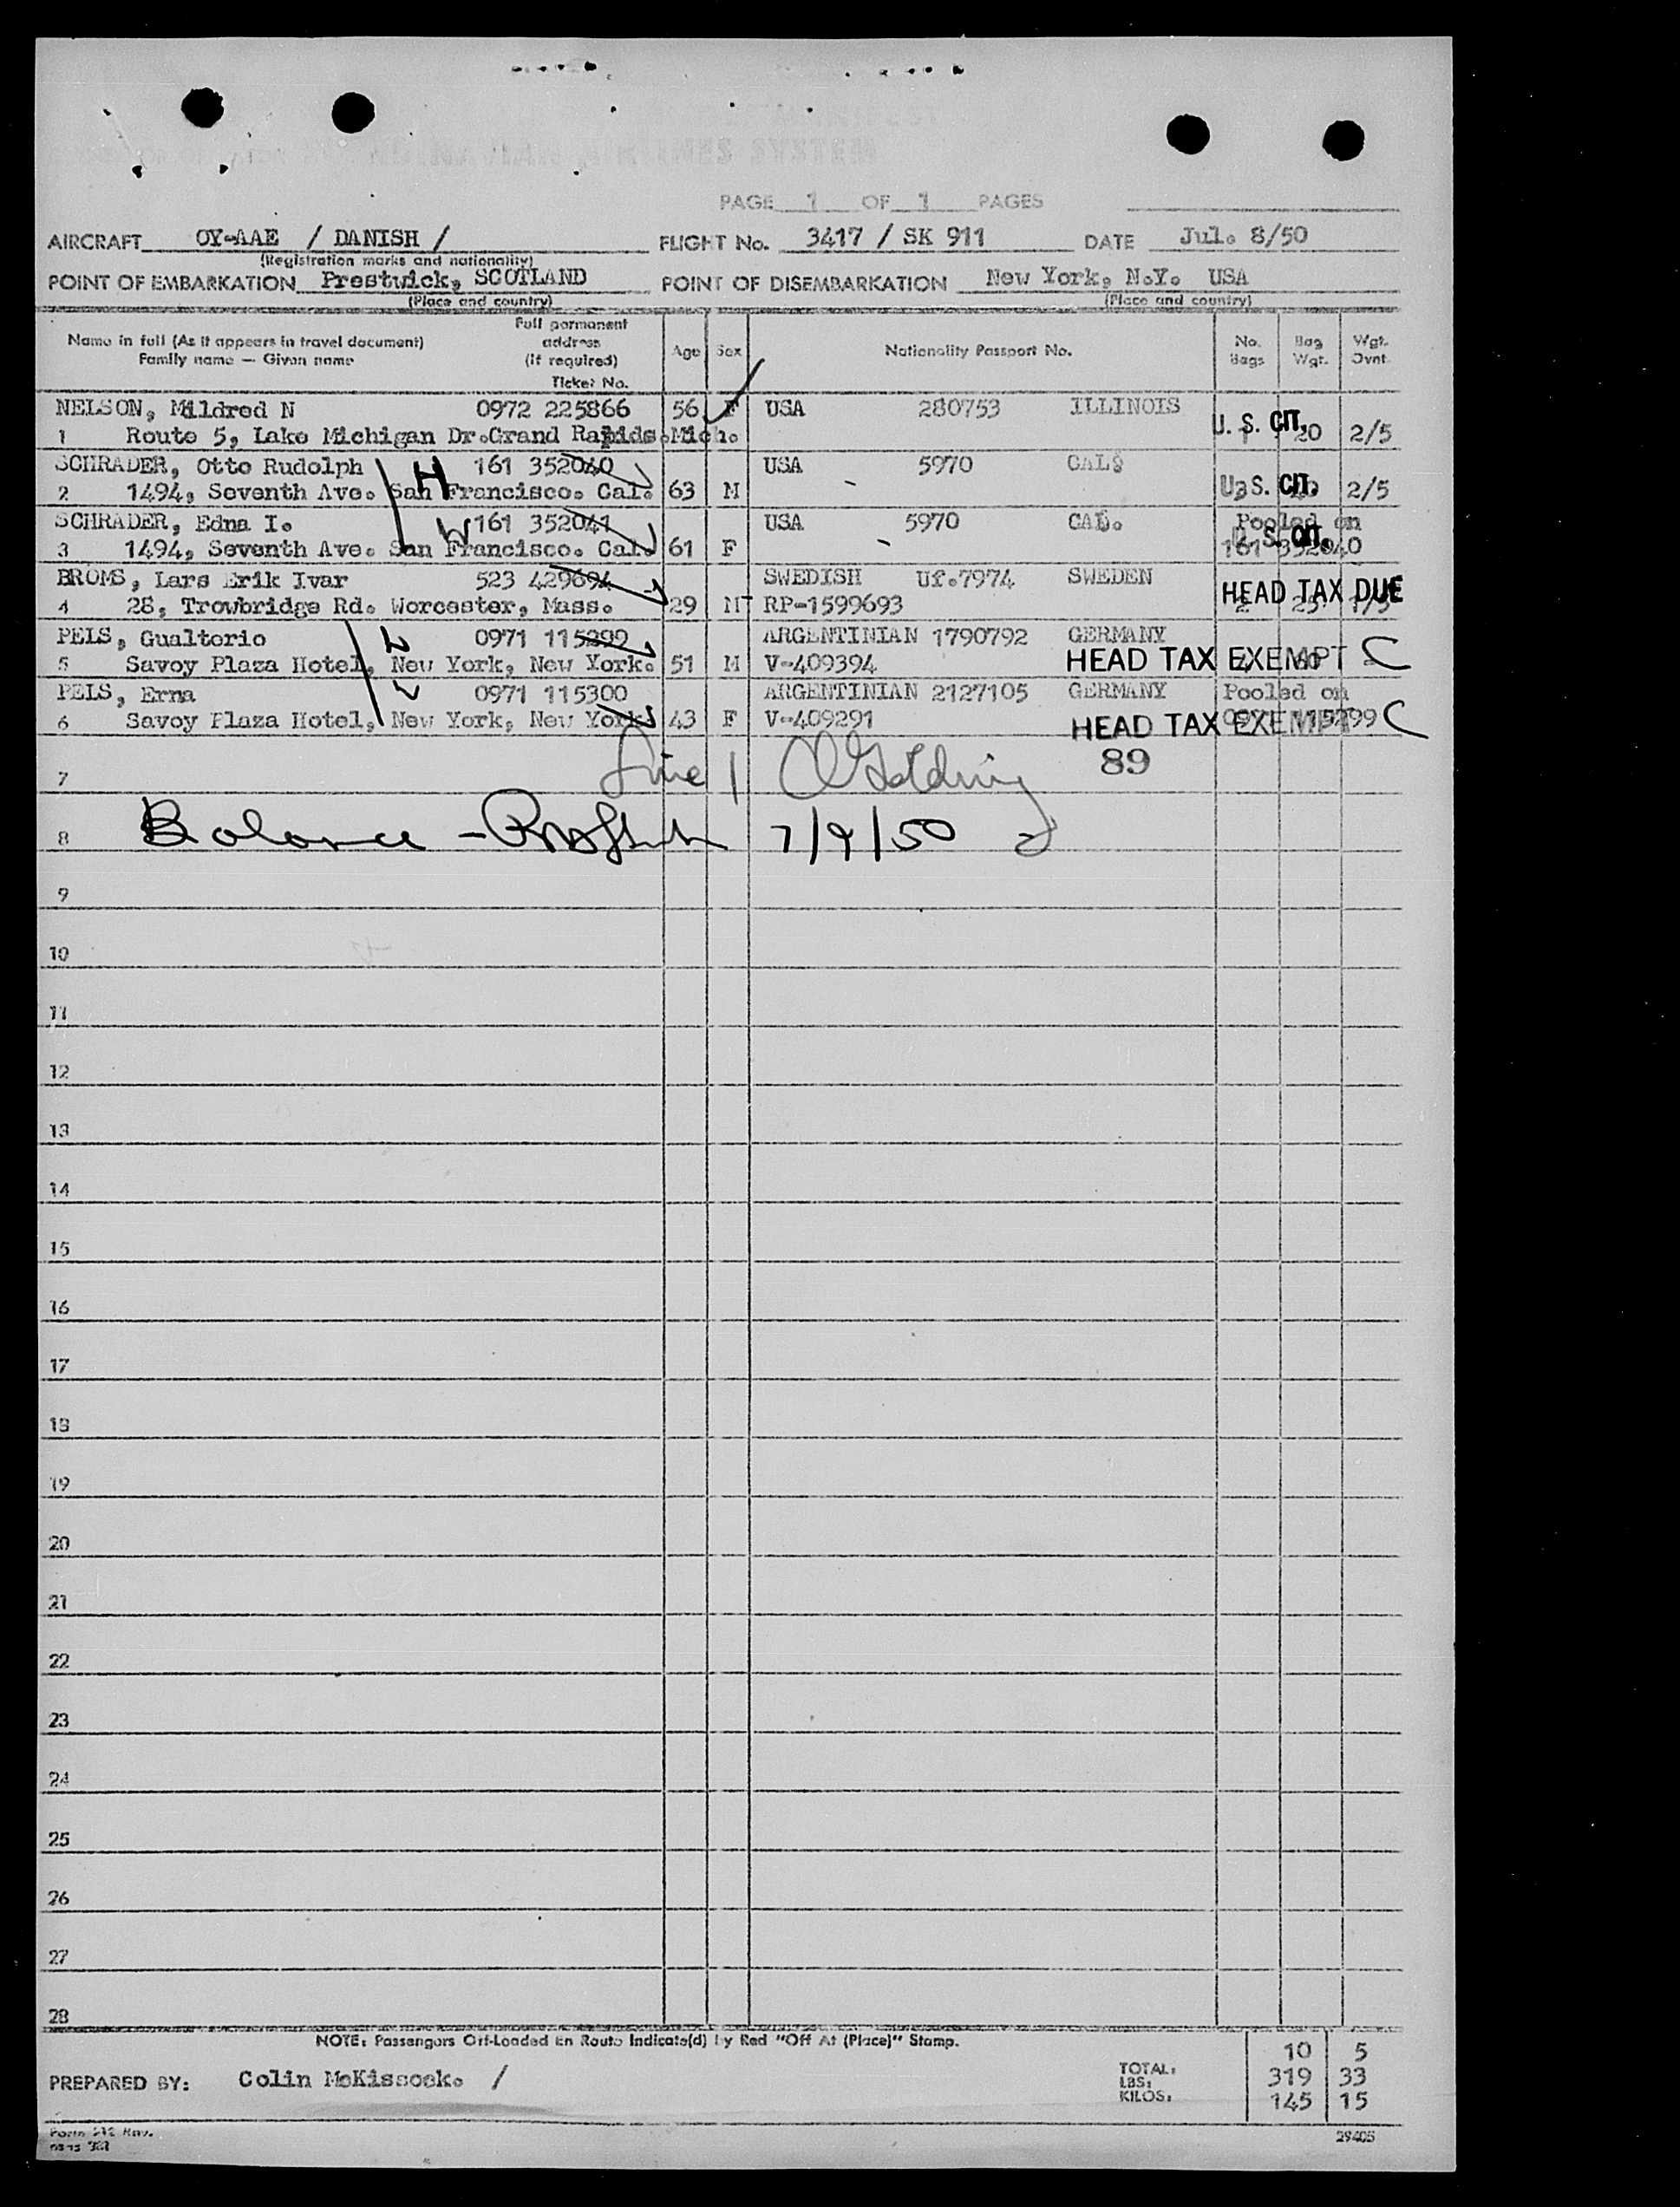 AIRLINES SYSTEM
PAGE 1 OF 1 PAGES
AIRCRAFT OY-AAE / DANISH / FLIGHT No. 3417 / SK 911 DATE Jul. 8/50
(Registration marks and nationality)
POINT OF EMBARKATION Prestwick, SCOTLAND POINT OF DISEMBARKATION New York, N.Y. USA
(Place and country) (Place and country)
Name in full (As it appears in travel document) Full permanent address (if required) Age Sex Nationality Passport No. No. Bags Bag Wgt. Wgt. Ovnt
Family name — Given name Ticket No.
NELSON, Mildred N 0972 225866 56 F USA 280753 ILLINOIS U. S. CIT.
1 Route 5, Lake Michigan Dr.Grand Rapids.Mich. 20 2/5
SCHRADER, Otto Rudolph H 161 352040 USA 5970 CAL.
2 1494, Seventh Ave. San Francisco. Cal. 63 M U. S. CIT. 2/5
SCHRADER, Edna I. W 161 352041 USA 5970 CAL. Pooled on
3 1494, Seventh Ave. San Francisco. Cal. 61 F U. S. CIT. 161 352040
BROMS, Lars Erik Ivar 523 429694 SWEDISH Uf.7974 SWEDEN HEAD TAX DUE
4 28, Trowbridge Rd. Worcester, Mass. 29 M RP-1599693 2 25 1/3
PELS, Gualterio 0971 115299 ARGENTINIAN 1790792 GERMANY
5 Savoy Plaza Hotel, New York, New York. 51 M V-409394 HEAD TAX EXEMPT C
PELS, Erna 0971 115300 ARGENTINIAN 2127105 GERMANY Pooled on
6 Savoy Plaza Hotel, New York, New York 43 F V-409291 HEAD TAX EXEMPT 0971 115299 C
7 Line 1 Golding 89
8 Balance - 7/9/50
9
10
11
12
13
14
15
16
17
18
19
20
21
22
23
24
25
26
27
28
NOTE: Passengers Off-Loaded En Route Indicate(d) by Red "Off At (Place)" Stamp.
10 5
PREPARED BY: Colin McKissock. / TOTAL:
LBS: 319 33
KILOS: 145 15
Form 212 Rev.
29405